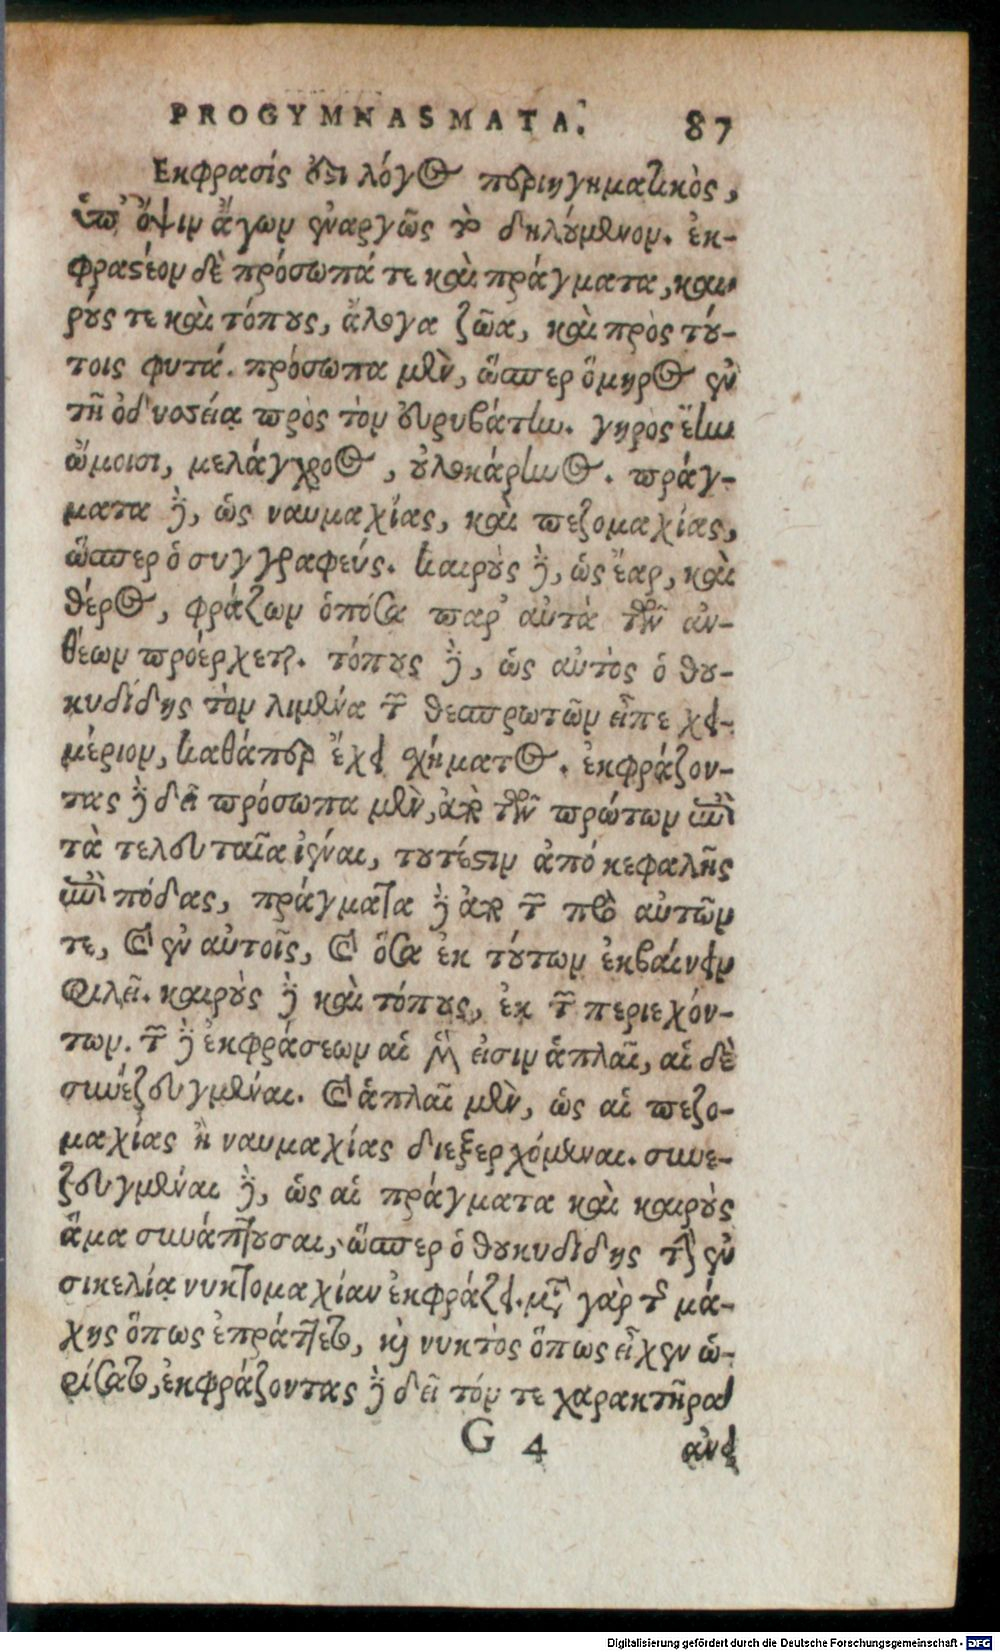 PROGYMNASMATA. 87
Εκφρασίς ὅτι λόγος περιηγηματικὸς,
ὑπ' ὄψιν ἄγων ἐναργῶς τὸ δηλούμενον. ἐκ-
φραστέον δὲ πρόσωπά τε καὶ πράγματα, και-
ρούς τε καὶ τόπους, ἄλογα ζῶα, καὶ πρὸς τού-
τοις φυτά. πρόσωπα μὲν, ὥσπερ ὅμηρος ἐν
τῆ ὀδυσσείᾳ πρὸς τὸν ουρυβάτίω. γηρὸς ἔίω
ὤμοισι, μελάγχροος, οὐλοκάρίωος. πράγ-
ματα δὲ, ὡς ναυμαχίας, καὶ πεζομαχίας,
ὥσπερ ὁ συγγραφεύς. καιροὺς δὲ, ὡς ἔαρ, καὶ
θέρος, φράζων ὁπόσα παρ' αὐτὰ τῶν ἀν-
θέων προέρχεται. τόπους δὲ, ὡς αὐτὸς ὁ θου-
κυδίδης τὸν λιμένα τῶν θεσπρωτῶν εἶπε χει-
μέριον, καθάπερ ἔχει σχήματος. ἐκφράζον-
τας δὲ δεῖ πρόσωπα μὲν, ἀπὸ τῶν πρώτων ἐπὶ
τὰ τελευταῖα ἰέναι, τουτέστιν ἀπὸ κεφαλῆς
ἐπὶ πόδας, πράγματα δὲ ἀπὸ τῶν πρὸ αὐτῶν
τε, καὶ ἐν αὐτοῖς, καὶ ὅσα ἐκ τούτων ἐκβαίνειν
φιλεῖ. καιροὺς δὲ καὶ τόπους, ἐκ τῶν περιεχόν-
των. τῶν δὲ ἐκφράσεων αἱ μέν εἰσιν ἁπλαῖ, αἱ δὲ
συνεζευγμέναι. καὶ ἁπλαῖ μὲν, ὡς αἱ πεζο-
μαχίας ἢ ναυμαχίας διεξερχόμεναι. συνε-
ζευγμέναι δὲ, ὡς αἱ πράγματα καὶ καιροὺς
ἅμα συνάπτουσαι, ὥσπερ ὁ θουκυδίδης τὴν ἐν
σικελίᾳ νυκτομαχίαν ἐκφράζει. μετὰ γὰρ τῆς μά-
χης ὅπως ἐπράττετο, καὶ νυκτὸς ὅπως εἶχεν ὡ-
ρίσατο, ἐκφράζοντας δὲ δεῖ τόν τε χαρακτῆρα
G 4 ἀνει
Digitalisierung gefördert durch die Deutsche Forschungsgemeinschaft - DFG